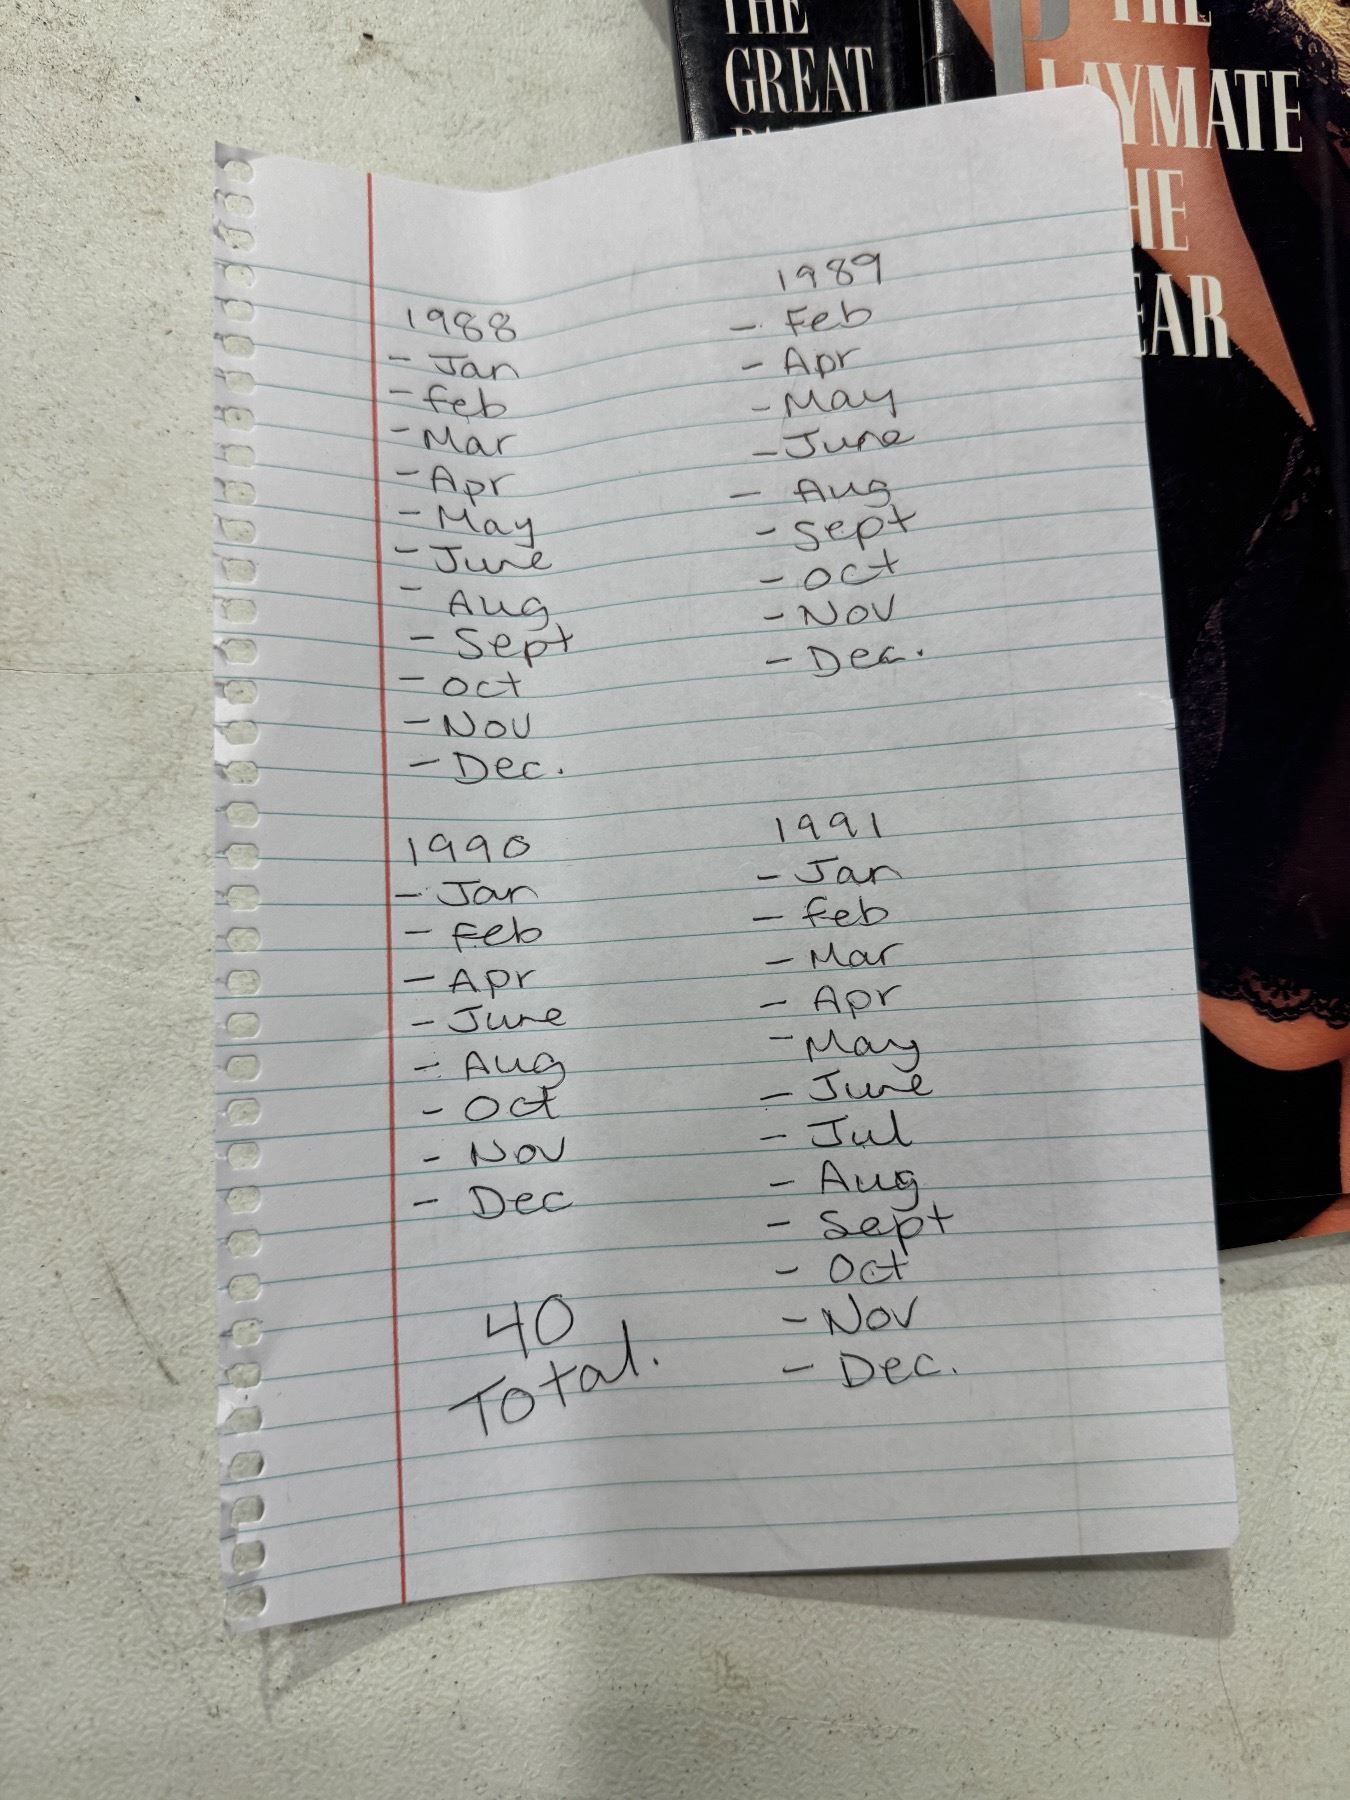 THE
GREAT
THE
PLAYMATE
THE
YEAR
1988
- Jan
- Feb
- Mar
- Apr
- May
- June
- Aug
- Sept
- Oct
- Nov
- Dec.
1989
- Feb
- Apr
- May
- June
- Aug
- Sept
- Oct
- Nov
- Dec.
1990
- Jan
- Feb
- Apr
- June
- Aug
- Oct
- Nov
- Dec
1991
- Jan
- Feb
- Mar
- Apr
- May
- June
- Jul
- Aug
- Sept
- Oct
- Nov
- Dec.
40
Total.